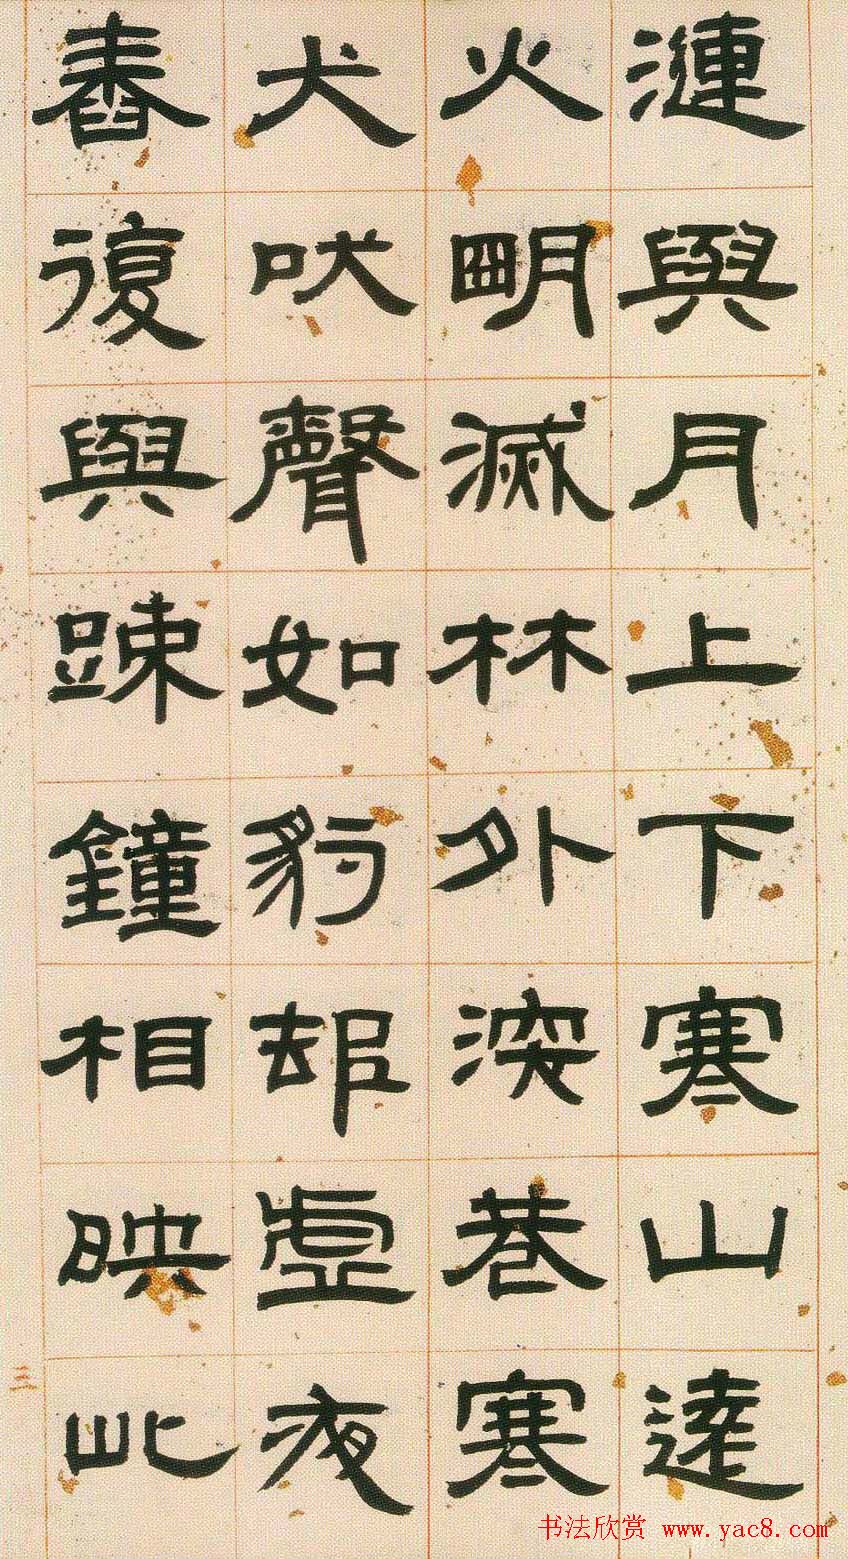 漣與月上下寒山遠
火明滅林外深巷寒
犬吠聲如豹邨虛夜
舂復與踈鐘相映此
三
书法欣赏 www.yac8.com